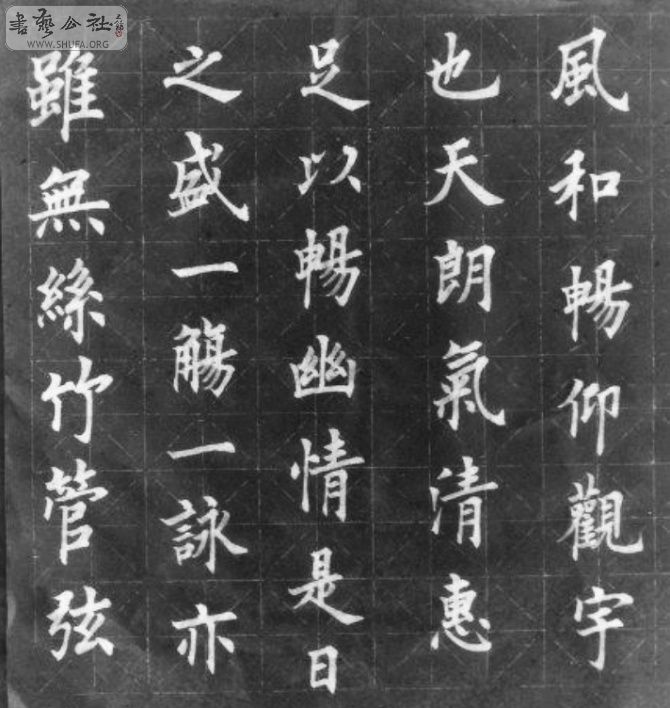 書藝公社
WWW.SHUFA.ORG
雖無絲竹管弦
之盛一觴一詠亦
足以暢幽情是日
也天朗氣清惠
風和暢仰觀宇